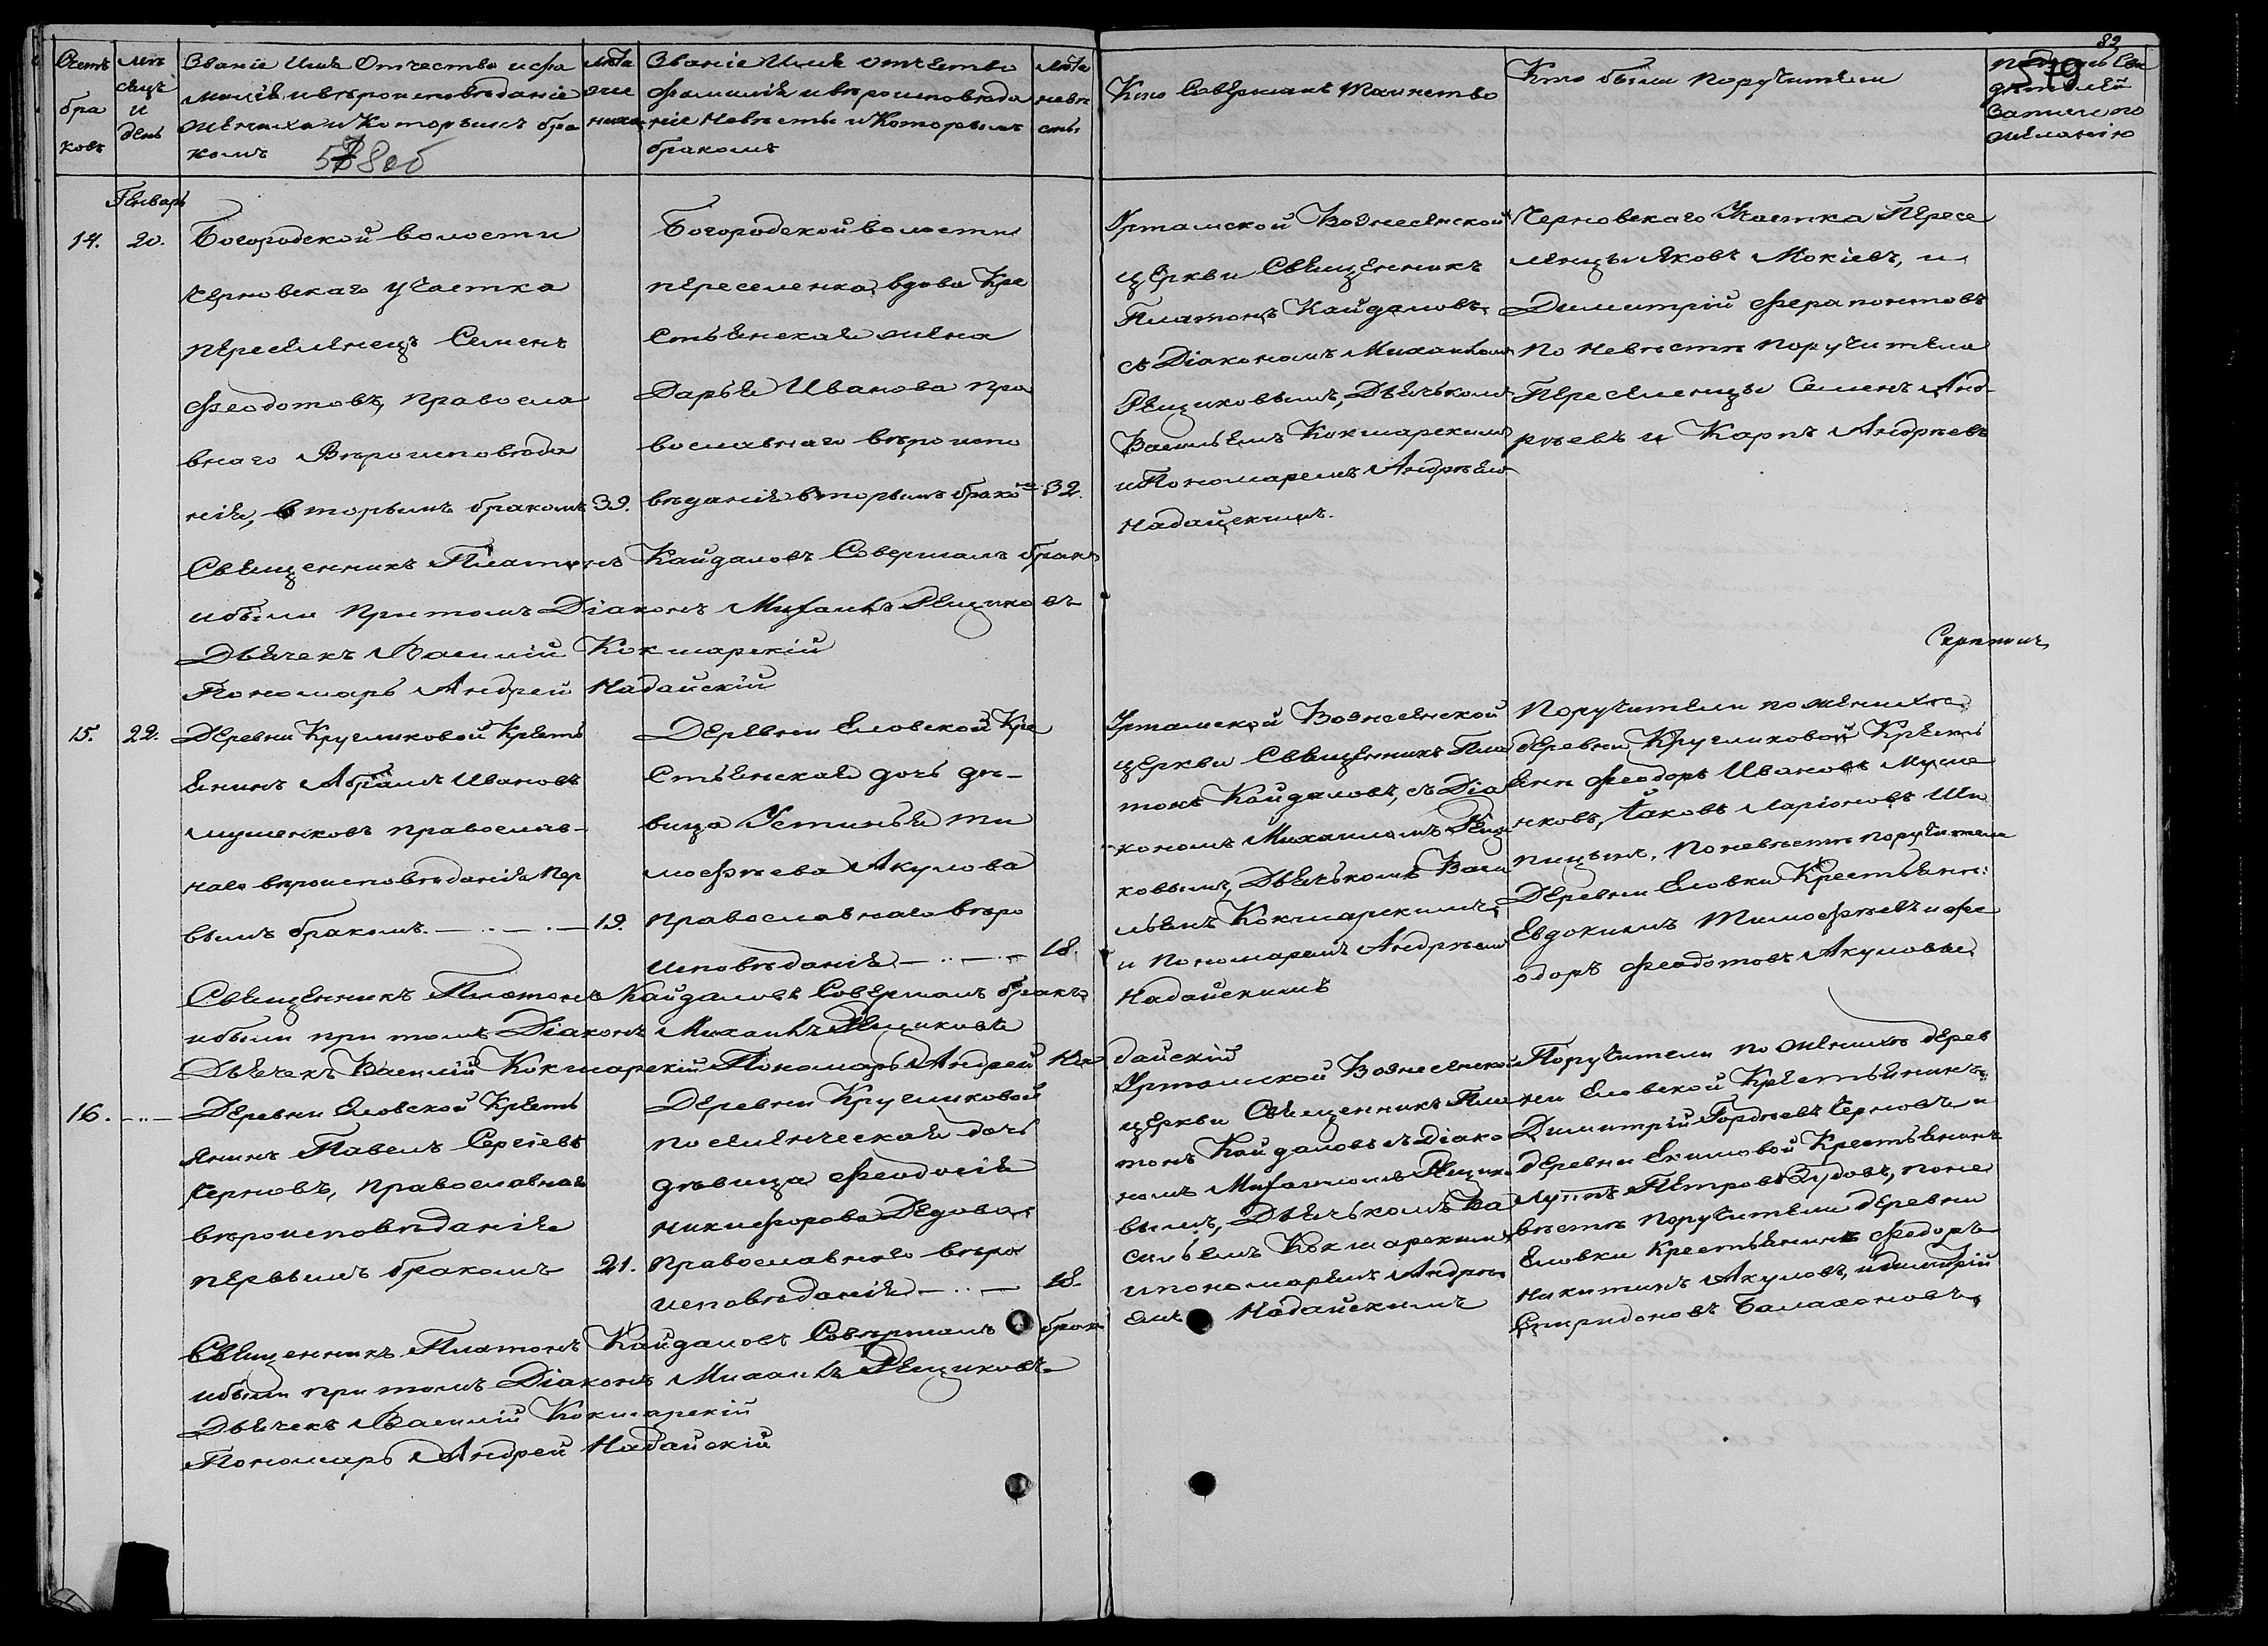 82
579
Счетъ браковъ
Мѣсяцъ и день
Званіе Имя Отчество и фа
миліе и вѣроисповѣданіе
жениха и Которымъ бра
комъ
578 об
лѣта жениха
Званіе Имя отчество
фамиліе и вѣроисповѣда
ніе невѣсты и Которымъ
бракомъ
лѣта невѣсты
Кто Совершалъ Таинство
Кто были поручители
Записи по
желанію
Генварь
14.
20.
Богородской волости
Черновскаго участка
переселенецъ Семенъ
Феодотовъ, православ
внаго Вѣроисповѣда
нія, вторымъ бракомъ
39.
Богородской волости
переселенка, вдова Кре
стьянская жена
Дарья Иванова пра
вославнаго вѣроиспо
вѣданія вторымъ брако
32.
Уртамской Вознесенской
церкви Священникъ
Платонъ Кайдаловъ,
съ Діакономъ Михаиломъ
Рещиковымъ, Дьячькомъ
Васильемъ Кокшарскимъ
и Пономаремъ Андрѣем
Надайскимъ.
Черновскаго Участка Пересе
ленцы Яковъ Мокіевъ, и
Димитрій Ферапонтовъ
По невѣстѣ поручители
Переселенцы Семенъ Анд
рѣевъ и Карпъ Андрѣевъ
Священникъ Платонъ Кайдаловъ Совершалъ бракъ
и были при томъ Діаконъ Михаилъ Рещиковъ
Дьячекъ Василій Кокшарскій
Пономарь Андрей Надайскій
15.
22.
Деревни Кругликовой Кресть
янинъ Абрамъ Ивановъ
Мушенковъ православ-
наго вѣроисповѣданія Пер
вымъ бракомъ.
19.
Деревни Еловской Кре
стьянская дочь дѣ-
вица Устинья ти
мофѣева Акулова
православнаго вѣро
исповѣданія
18.
Уртамской Вознесенской
церкви Священникъ Пла
тонъ Кайдаловъ, съ Діа
кономъ Михаиломъ Рещи
ковымъ, Дьячькомъ Васи
льемъ Кокшарскимъ,
и Пономаремъ Андрѣемъ
Надайскимъ
Поручители по женихѣ
деревни Кругликовой Кресть
яни Феодоръ Ивановъ Муше
нковъ, Іаковъ Ларіоновъ Ши
пицынъ, По невѣстѣ поручители
Деревни Еловки Крестьяни:
Евдокимъ Тимофѣевъ и Фе
одоръ Феодотовъ Акуловы
Священникъ Платонъ Кайдаловъ Совершалъ бракъ
и были при томъ Діаконъ Михаилъ Рещиковъ
Дьячекъ Василій Кокшарскій Пономарь Андрей На
дайскій
16.
Деревни Еловской Кресть
янинъ Павелъ Сергѣевъ
Черновъ, православнаго
вѣроисповѣданія
первымъ бракомъ
21.
Деревни Кругликовой
поселенческая дочь
дѣвица Феодосія
Никифорова Дедова
православнаго вѣро
исповѣданія
18.
Уртамской Вознесенской
церкви Священникъ Пла
тонъ Кайдаловъ съ Діако
номъ Михаиломъ Рещико
вымъ, Дьячькомъ Ва
сильемъ Кокшарскимъ
и пономаремъ Андрѣ
емъ Надайскимъ
Поручители по женихѣ дерев
ни Еловской Крестьянинъ
Димитрій Гордѣевъ Черновъ и
деревни Екимовой Крестьянинъ
Петровъ Зудовъ, по не
вѣстѣ поручители деревни
Еловки Крестьянинъ Федоръ
Никитинъ Акуловъ, и Димитрій
Спиридоновъ Балахоновъ,
Священникъ Платонъ Кайдаловъ Совершалъ бракъ
и были при томъ Діаконъ Михаилъ Рещиковъ
Дьячекъ Василій Кокшарскій
Пономарь Андрей Надайскій